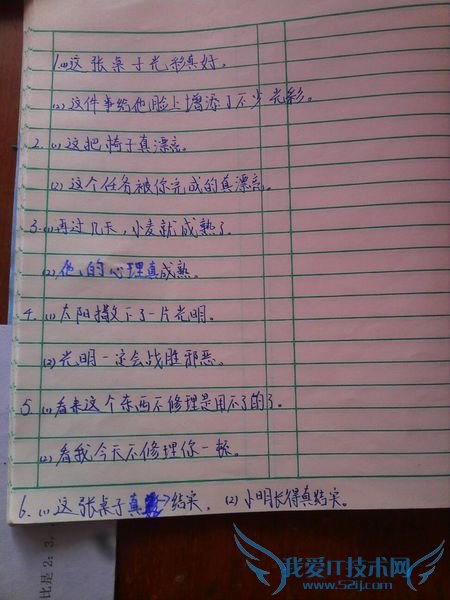 1.(1)这张桌子光彩真好。
(2)这件事给他脸上增添了不少光彩。
2.(1)这把椅子真漂亮。
(2)这个任务被你完成的真漂亮。
3.(1)再过几天,小麦就成熟了。
(2)他的心理真成熟。
4.(1)太阳撒下了一片光明。
(2)光明一定会战胜邪恶。
5.(1)看来这个东西不修理是用不了的了。
(2)看我今天不修理你一顿。
6.(1)这张桌子真结实. (2)小明长得真结实。
比是2:3,
我爱IT技术网
www.52ij.com